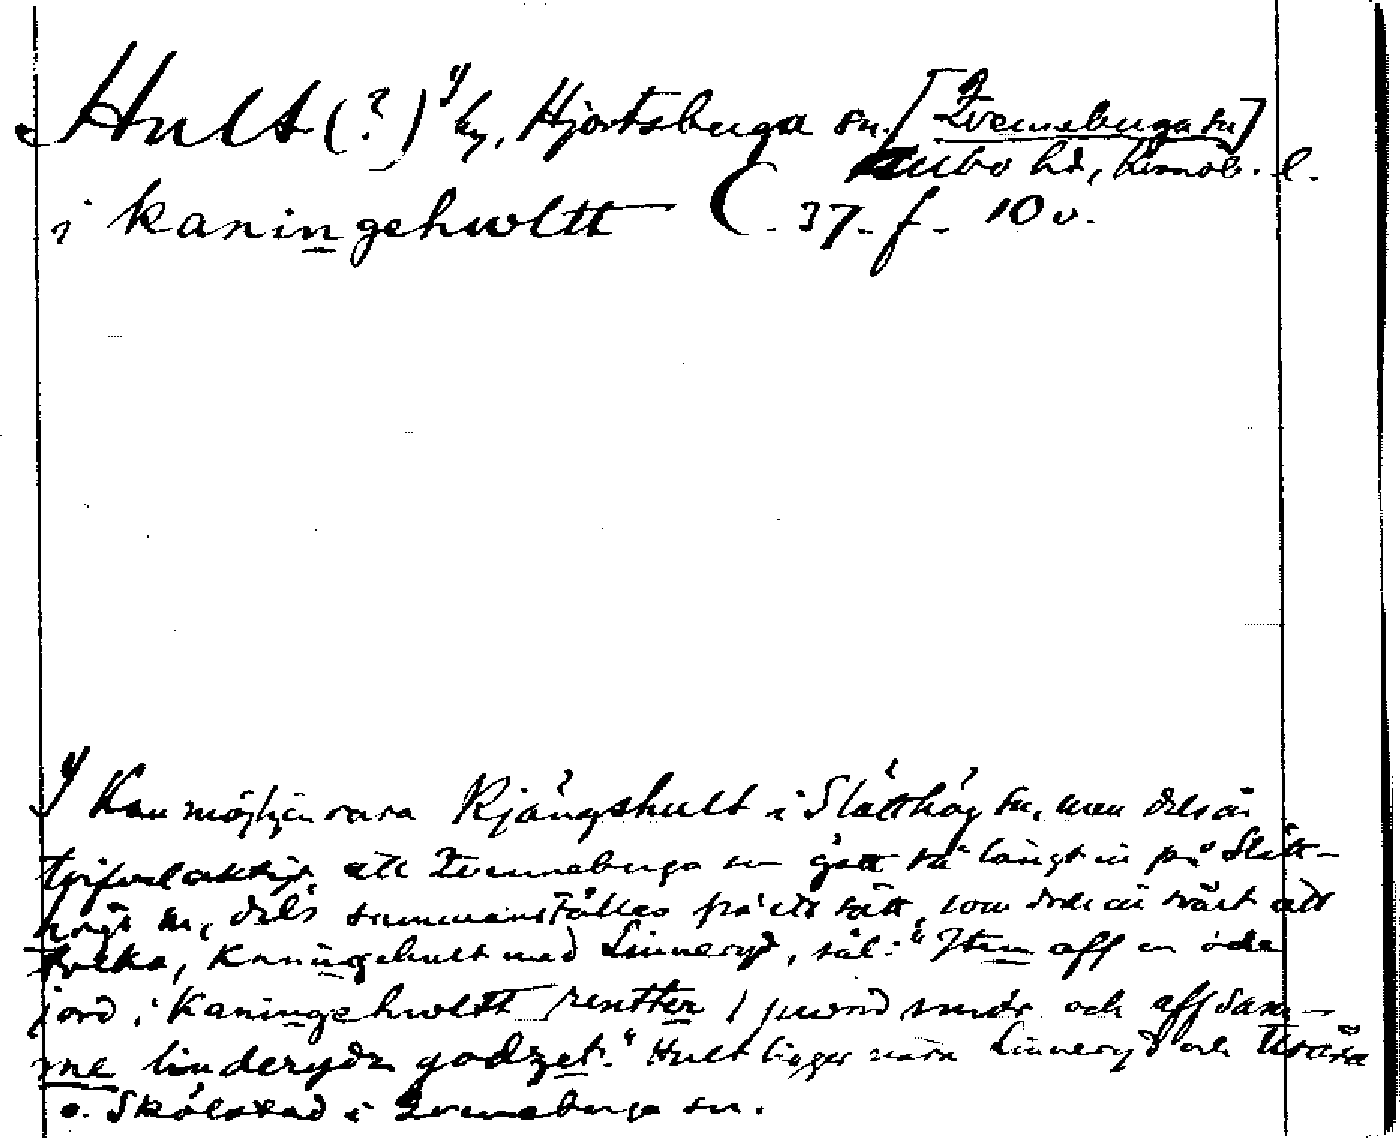 Hult (?) 1) by, Hjortsberga sn. [Tvenneberga sn]
hd, kronob. l.
i kaningehwltt C. 37. f. 10 v.
1) Kan möjligen vara Kjängshult i Slätthög sn, men dels är
tvifvelaktigt att Tvenneberga sn gått så långt in på Slätt-
högs sn, dels sammanställes på ett sätt, som dock är svårt att
tolka, Kaningehult med Linneryd, sål: "Item aff en öde
jord i Kaningehwltt rentter 1 pund smör och aff sam-
me linderydz godzet." Hult ligger nära Linneryd och
o. Skålstad i Tvenneberga sn.